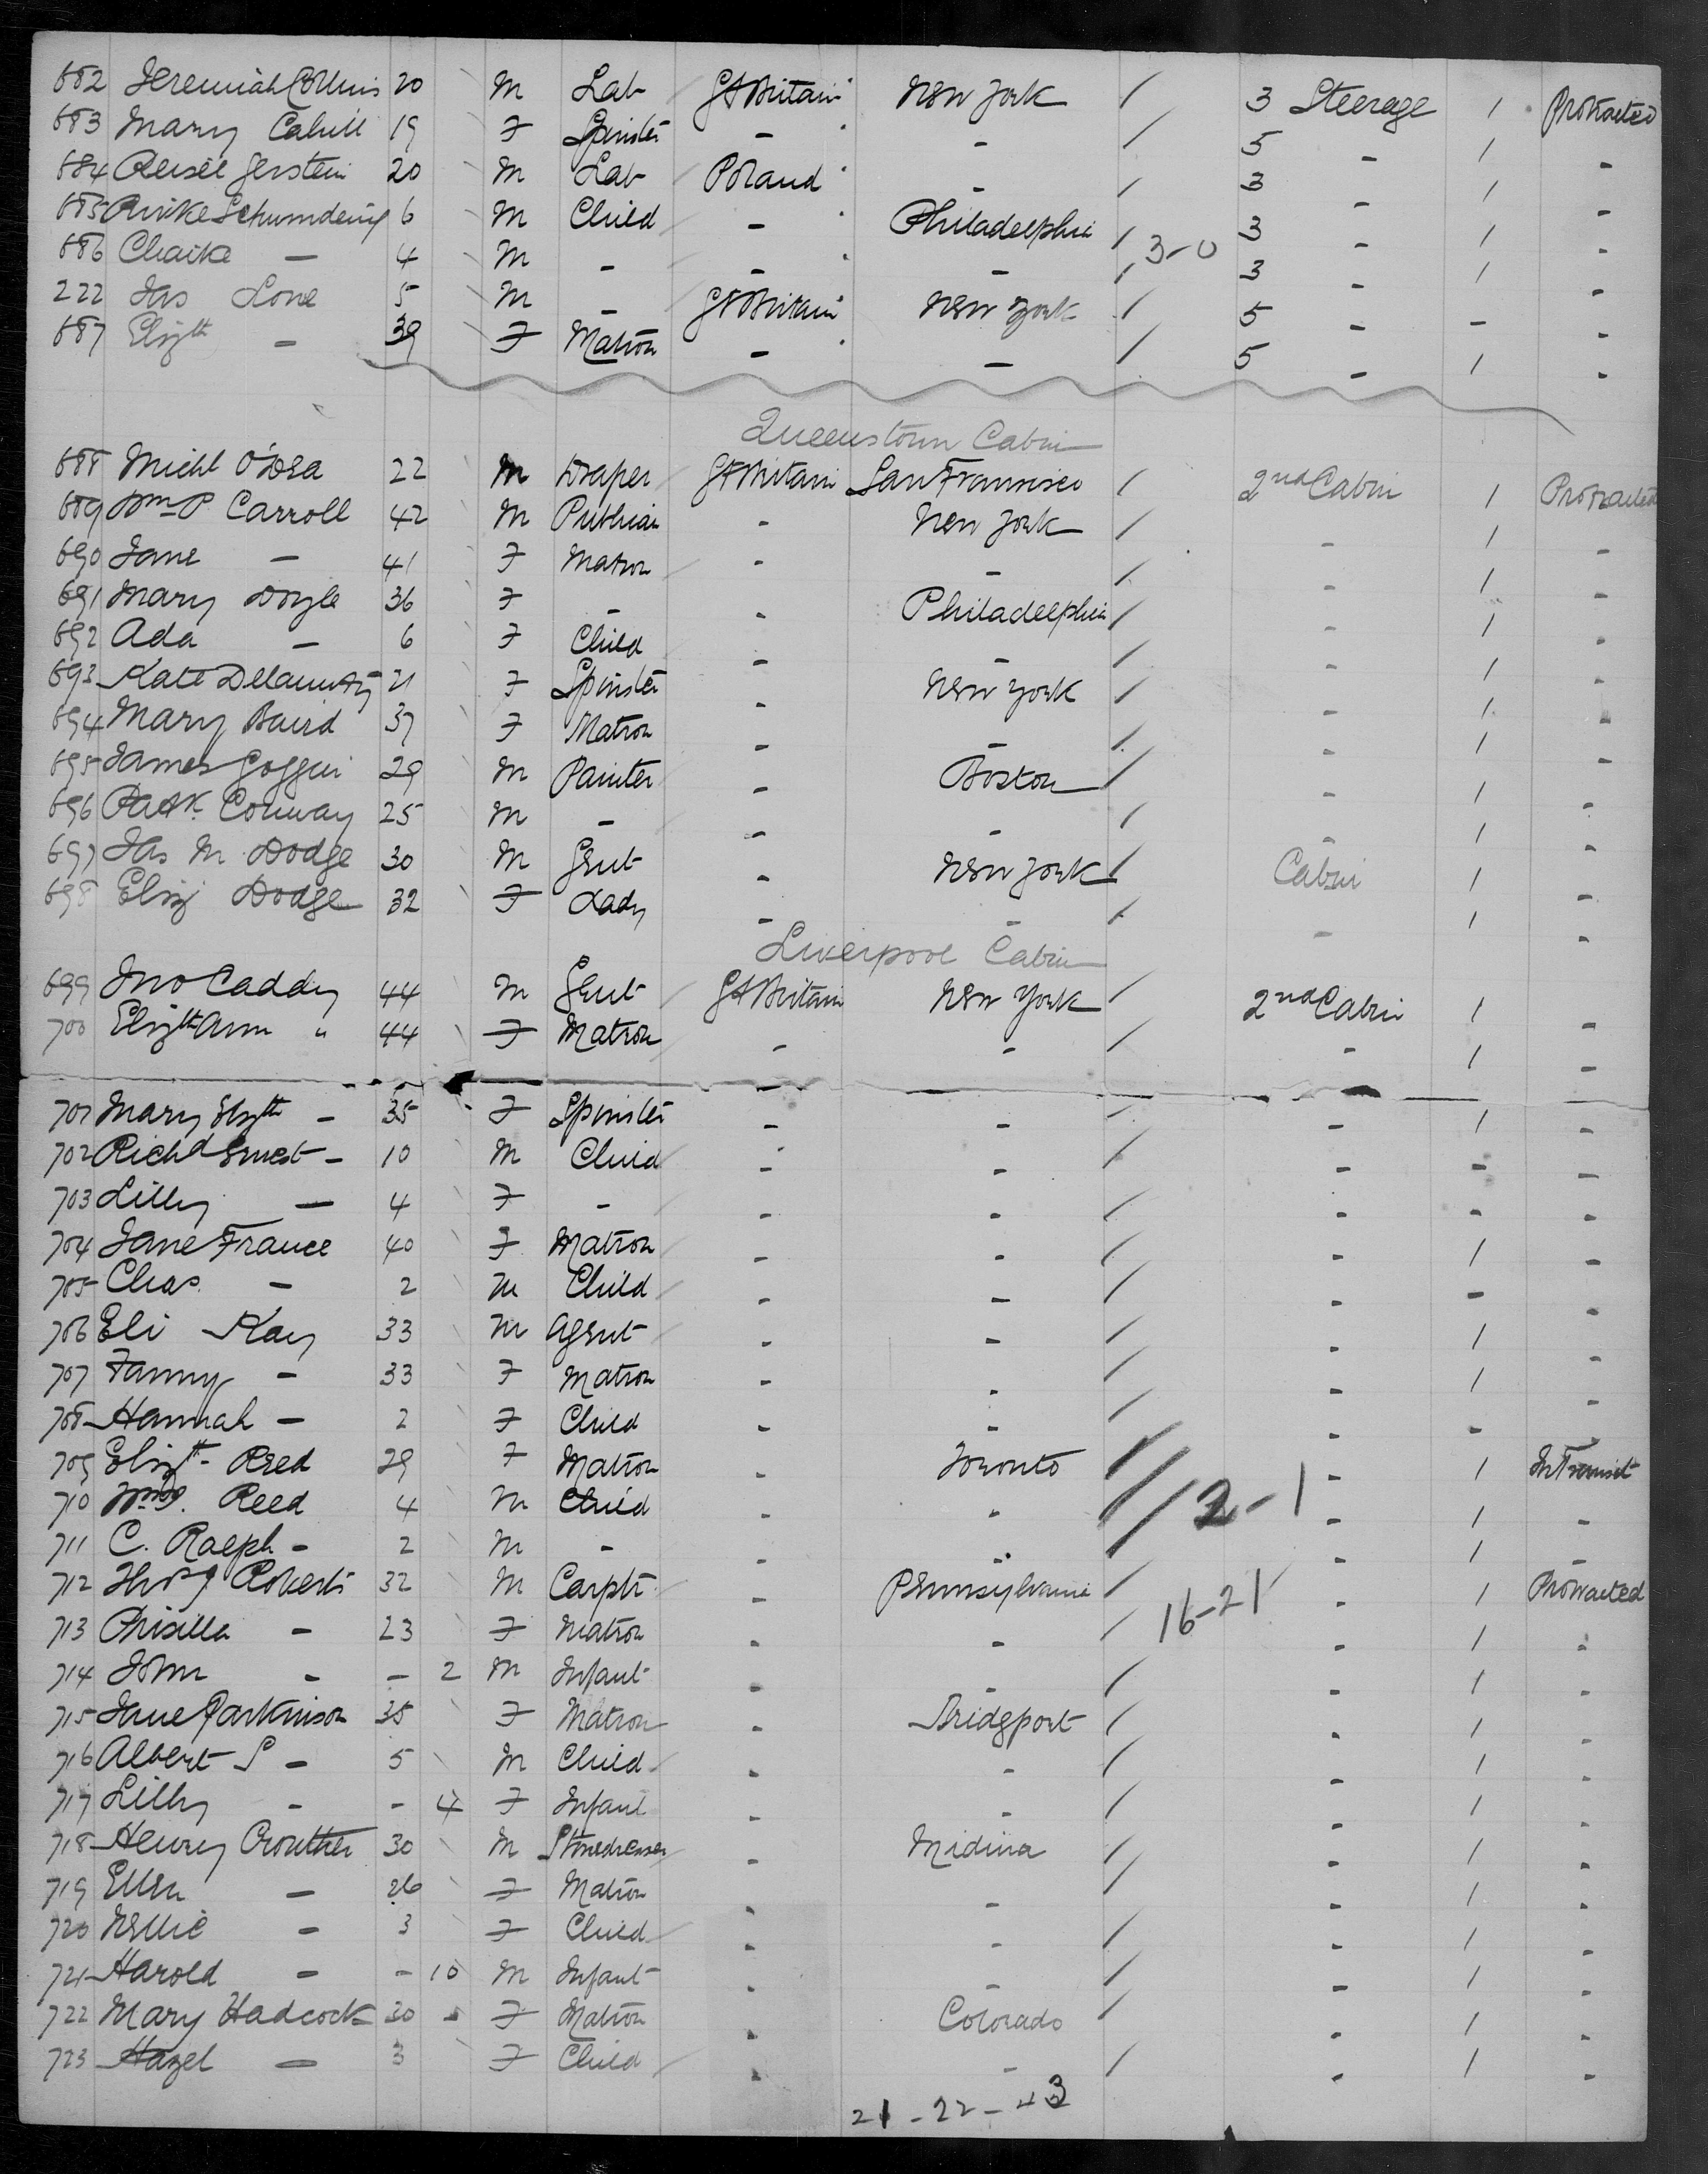 682 Jeremiah Collins 20 M Lab Gt Britain New York / 3 Steerage 1 Protracted
683 Mary Cahill 19 F Spinster - - / 5 - 1 -
684 Gerstein 20 M Lab Poland - / 3 - 1 -
685 6 M Child - Philadelphia / 3-0 3 - 1 -
686 Chaika — 4 M - - - / 3 - 1 -
222 Jas Lone 5 M - Gt Britain New York / 5 - - -
687 Elizth - 39 F Matron - - / 5 - 1 -
Queenstown Cabin
688 Michl O'Dea 22 M Draper Gt Britain San Francisco / 2nd Cabin 1 Protracted
689 Wm P Carroll 42 M Publican - New York / - 1 -
690 Jane - 41 F Matron - - / - 1 -
691 Mary Doyle 36 F - - Philadelphia / - 1 -
692 Ada - 6 F Child - - / - 1 -
693 Kate Delaunty 21 F Spinster - New York / - 1 -
694 Mary Baird 37 F Matron - - / - 1 -
695 James Goggin 29 M Painter - Boston / - 1 -
696 Patk Conway 25 M - - - / - 1 -
697 Jas M Dodge 30 M Gent - New York / Cabin 1 -
698 Eliz Dodge 32 F Lady - - / - 1 -
Liverpool Cabin
699 Jno Caddy 44 M Gent Gt Britain New York / 2nd Cabin 1 -
700 Elizth Ann " 44 F Matron - - / - 1 -
701 Mary Elizth - 35 F Spinster - - / - 1 -
702 Richd Ernest - 10 M Child - - / - - -
703 Lilly — 4 F - - - / - - -
704 Jane France 40 F Matron - - / - 1 -
705 Chas. - 2 M Child - - / - - -
706 Eli Kay 33 M Agent - - / - 1 -
707 Fanny - 33 F Matron - - / - 1 -
708 Hannah - 2 F Child - - / - - -
709 Elizth Reed 29 F Matron - Toronto / - 1 In Transit
710 Reed 4 M Child - - / 2-1 - 1 -
711 C. Ralph - 2 M - - - / - 1 -
712 Thos J Roberts 32 M Carptr - Pennsylvania / - 1 Protracted
713 Prisilla - 23 F Matron - - / 16-21 - 1 -
714 John - - 2 M Infant - - / - 1 -
715 Jane Parkinson 35 F Matron - Bridgport / - 1 -
716 Albert S - 5 M Child - - / - 1 -
717 Lilly - - 4 F Infant - - / - 1 -
718 Henry Crouther 30 M - Midina / - 1 -
719 Ellen - 26 F Matron - - / - 1 -
720 Nellie - 3 F Child - - / - 1 -
721 Harold - - 10 M Infant - - / - 1 -
722 Mary Hadcock 30 - F Matron - Colorado / - 1 -
723 Hazel - 3 F Child - - / - 1 -
21-22-43